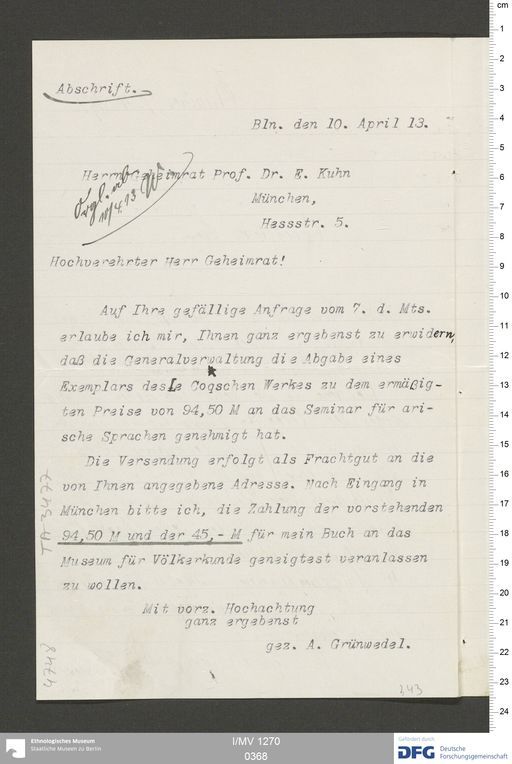 Abschrift.
Bln. den 10. April 13.
Herrn Geheimrat Prof. Dr. E. Kuhn
München,
Hessstr. 5.
10/4.13
Hochverehrter Herr Geheimrat!
Auf Ihre gefällige Anfrage vom 7. d. Mts.
erlaube ich mir, Ihnen ganz ergebenst zu erwidern,
daß die Generalverwaltung die Abgabe eines
Exemplars des Le Coqschen Werkes zu dem ermäßig-
ten Preise von 94,50 M an das Seminar für ari-
sche Sprachen genehmigt hat.
Die Versendung erfolgt als Frachtgut an die
von Ihnen angegebene Adresse. Nach Eingang in
München bitte ich, die Zahlung der vorstehenden
94,50 M und der 45,- M für mein Buch an das
Museum für Völkerkunde geneigtest veranlassen
zu wollen.
Mit vorz. Hochachtung
ganz ergebenst
gez. A. Grünwedel.
TA 3477
4748
243
cm
1
2
3
4
5
6
7
8
9
10
11
12
13
14
15
16
17
18
19
20
21
22
23
24
Ethnologisches Museum
Staatliche Museen zu Berlin
I/MV 1270
0368
Gefördert durch
DFG Deutsche
Forschungsgemeinschaft